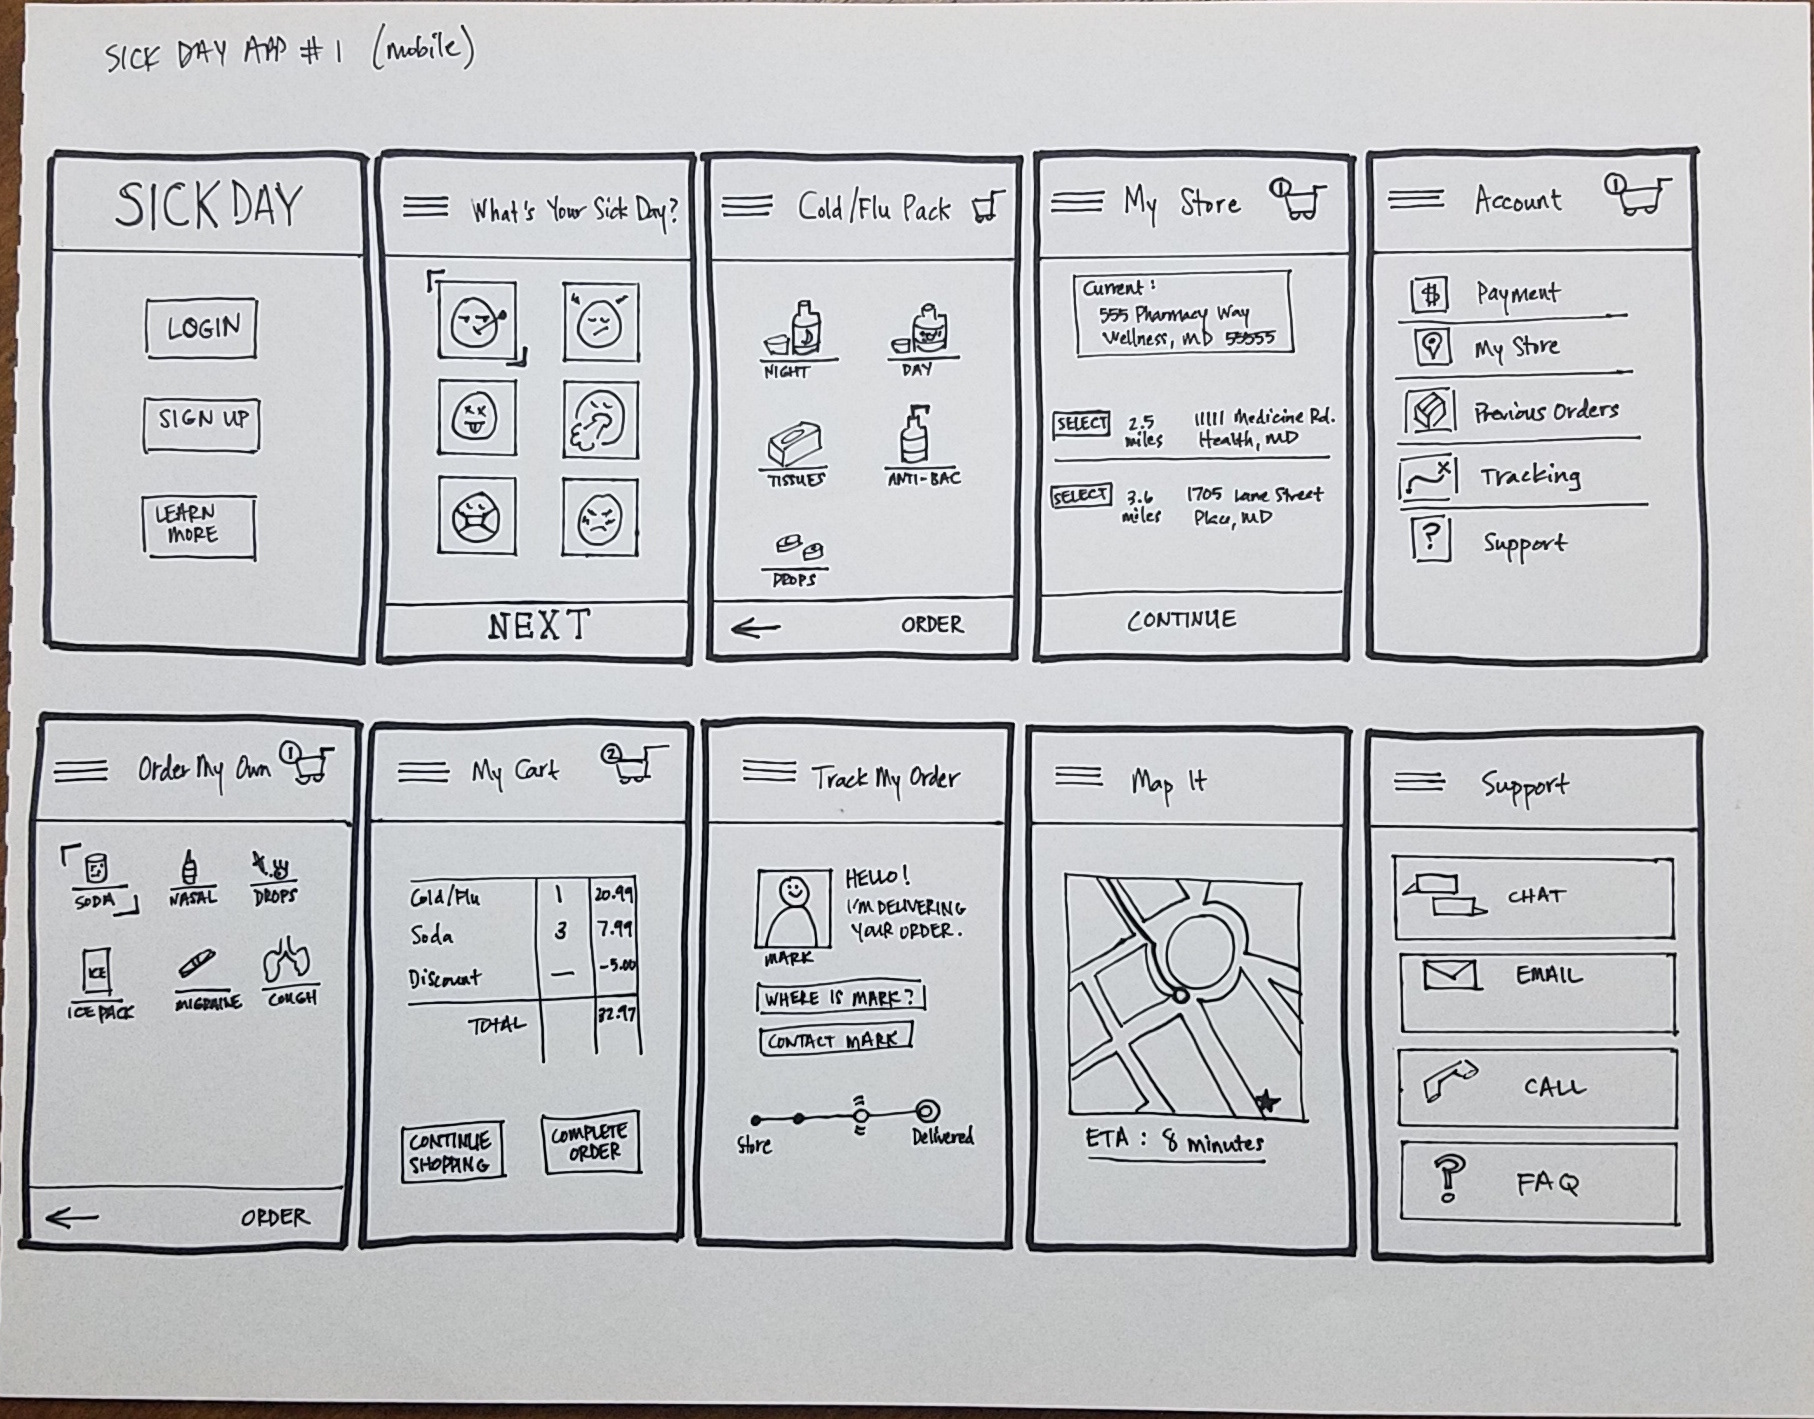 SICK DAY APP #1 (mobile)
SICK DAY
LOGIN
SIGN UP
LEARN
MORE
What's Your Sick Day?
NEXT
Cold/Flu Pack
NIGHT
DAY
TISSUES
ANTI-BAC
DROPS
ORDER
My Store
1
Current:
555 Pharmacy Way
Wellness, MD 55555
SELECT
2.5
miles
11111 Medicine Rd.
Health, MD
SELECT
3.6
miles
1705 Lane Street
Place, MD
CONTINUE
Account
1
$
Payment
My Store
Previous Orders
x
Tracking
?
Support
Order My Own
1
SODA
NASAL
DROPS
ICE
ICE PACK
MIGRAINE
COUGH
ORDER
My Cart
2
Cold/Flu 1 20.99
Soda 3 7.99
Discount — -5.00
TOTAL 32.97
CONTINUE
SHOPPING
COMPLETE
ORDER
Track My Order
HELLO!
I'M DELIVERING
YOUR ORDER.
MARK
WHERE IS MARK?
CONTACT MARK
Store
Delivered
Map It
ETA: 8 minutes
Support
CHAT
EMAIL
CALL
?
FAQ